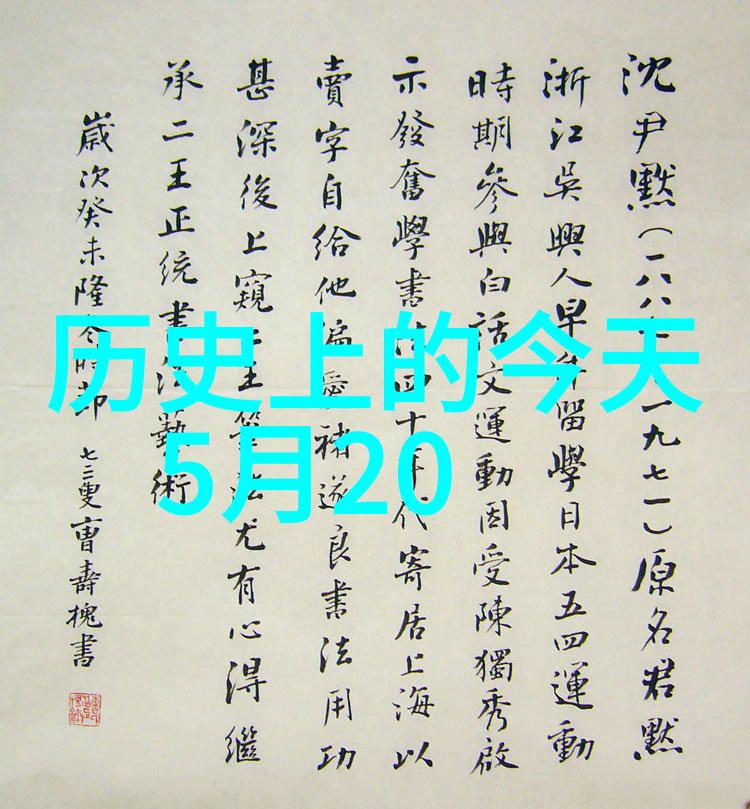 沈尹默(一八八 一九七一)原名君默
浙江吳興人早年留學日本五四運動
時期參與白話文運動因受陳獨秀啟
示發奮學書 四十年代寄居上海以
賣字自給他偏愛褚遂良書法用功
甚深後上窺二王筆法尤有心得繼
承二王正統書法藝術
歲次癸未隆冬 七三叟曹壽槐書
历史上的今天
5月20